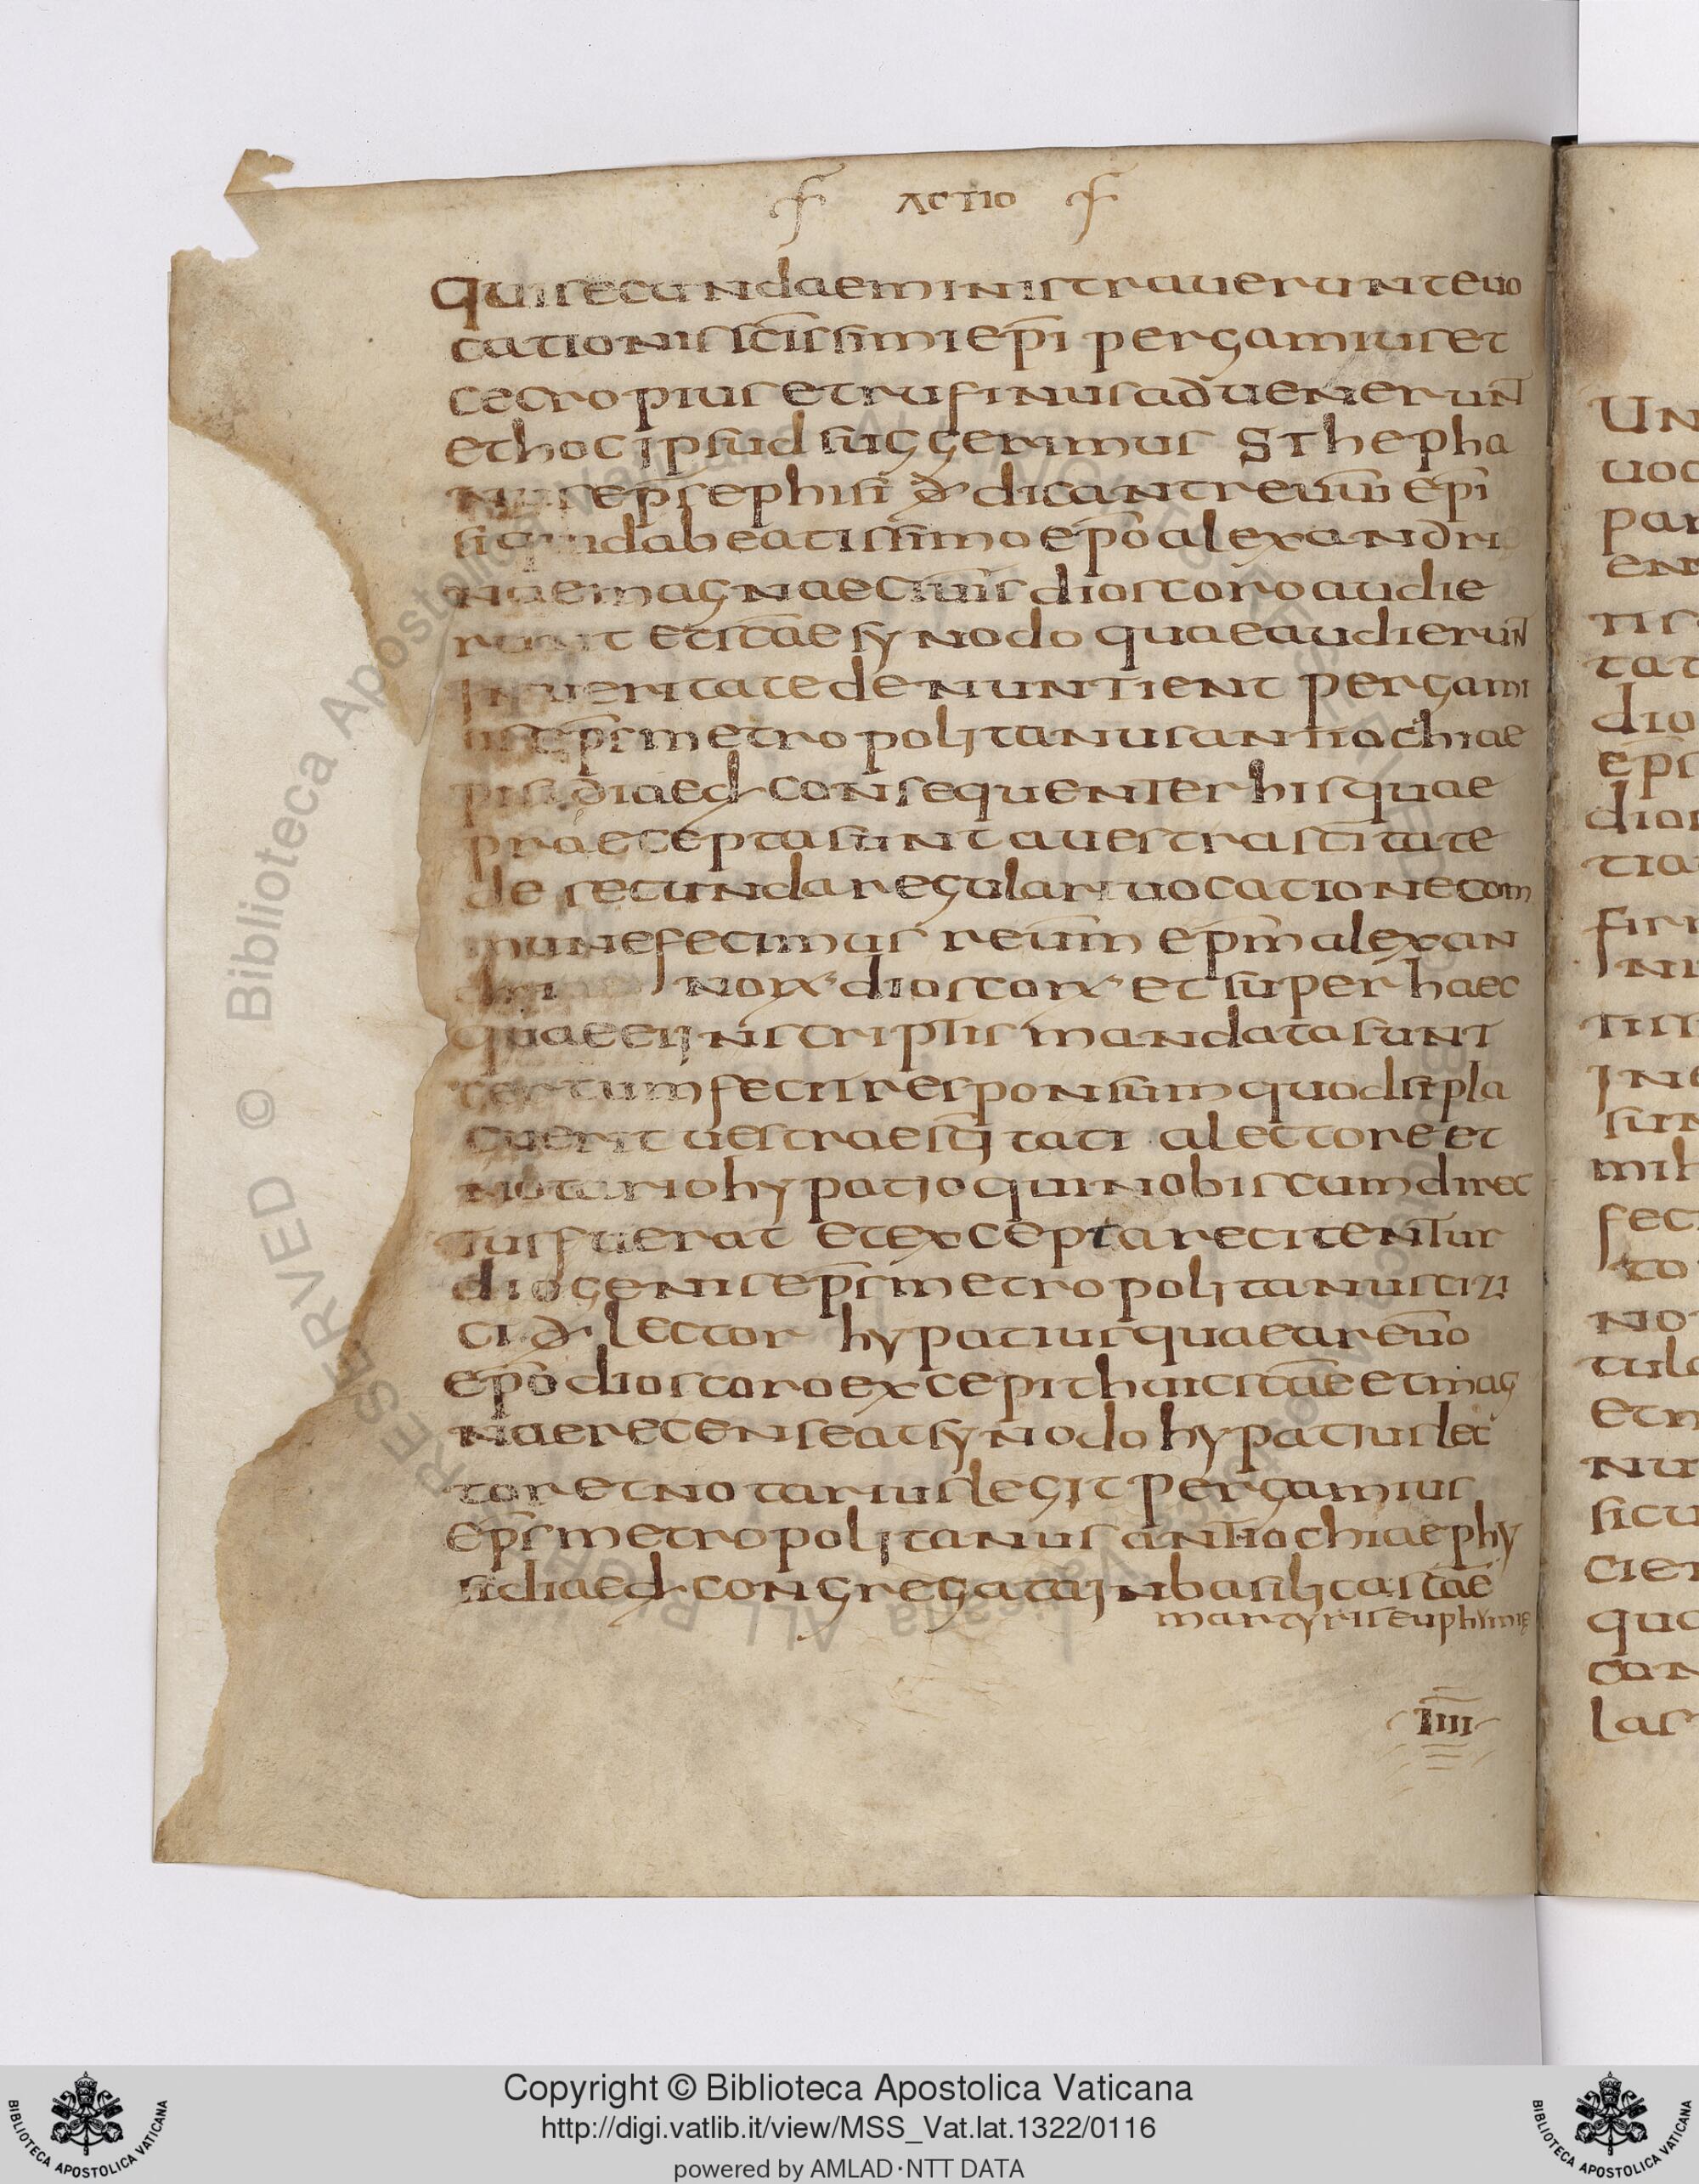 ACTIO
quisecundaeministrauerunteuo
cationis sc̄issimi ep̄i pergamius et
cecropius et rufinus aduenerun̄
et hoc ipsud suggerimus Sthepha
nus eps ephisi d̄ dicant reum̄i ep̄i
si quid a beatissimo ep̄o alexandri
nae magnae ciuīs dioscoro audie
runt et sc̄ae synodo quae audierun̄
in ueritate denuntient pergami
us ep̄s metropolitanus antiochiae
pisidiae d̄ consequenter his quae
praecepta sunt a uestra sc̄itate
de secunda regulari uocatione com
mune fecimus reum̄ ep̄m alexan
dri norx dioscorx et super haec
quae ei in scriptis mandata sunt
certum fecit responsum quod si pla
cuerit uestrae sc̄itati a lectore et
notario hypatio qui nobiscum direc
tus fuerat et excepta recitentur
diogenis ep̄s metropolitanus cizi
ci d̄ lector hypatius quae a reuō
ep̄o dioscoro excepit huic sc̄ae et mag
nae recenseat synodo hypatius lec
tor et notarius legit pergamius
ep̄s metropolitanus antiochiae phy
sidiae d̄ congregata in basilica sc̄ae
martyris euphimię
IIII
UN
uoc
par
en
tis
tat
dio
ep̄s
dios
tia
firm
ni
tiss
ine
sim
mih
fec
to
no
tula
et
nu
sicu
cien
quo
con
las
Copyright © Biblioteca Apostolica Vaticana
http://digi.vatlib.it/view/MSS_Vat.lat.1322/0116
powered by AMLAD·NTT DATA
BIBLIOTECA APOSTOLICA VATICANA
BIBLIOTECA APOSTOLICA VATICANA